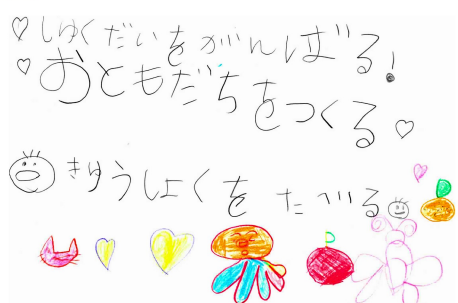 ♡しゅくだいをがんばる!
♡おともだちをつくる♡
きゅうしょくをたべる